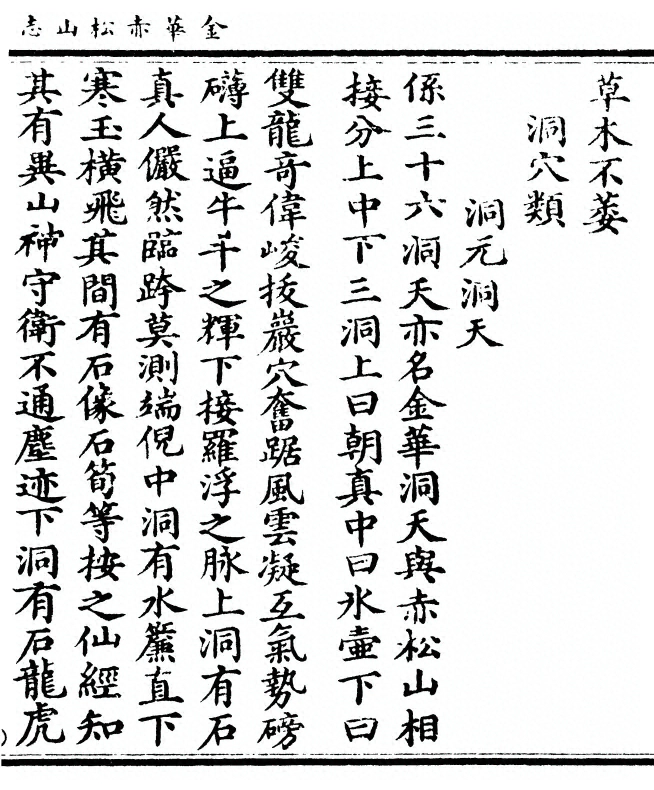 金華赤松山志
草木不萎
洞穴類
洞元洞天
係三十六洞天亦名金華洞天與赤松山相
接分上中下三洞上曰朝真中曰氷壷下曰
雙龍竒偉峻拔巖穴奮踞風雲凝互氣勢磅
礴上逼牛斗之輝下接羅浮之脉上洞有石
真人儼然臨跨莫測端倪中洞有水簾直下
寒玉橫飛其間有石像石筍等按之仙經知
其有異山神守衛不通塵迹下洞有石龍虎